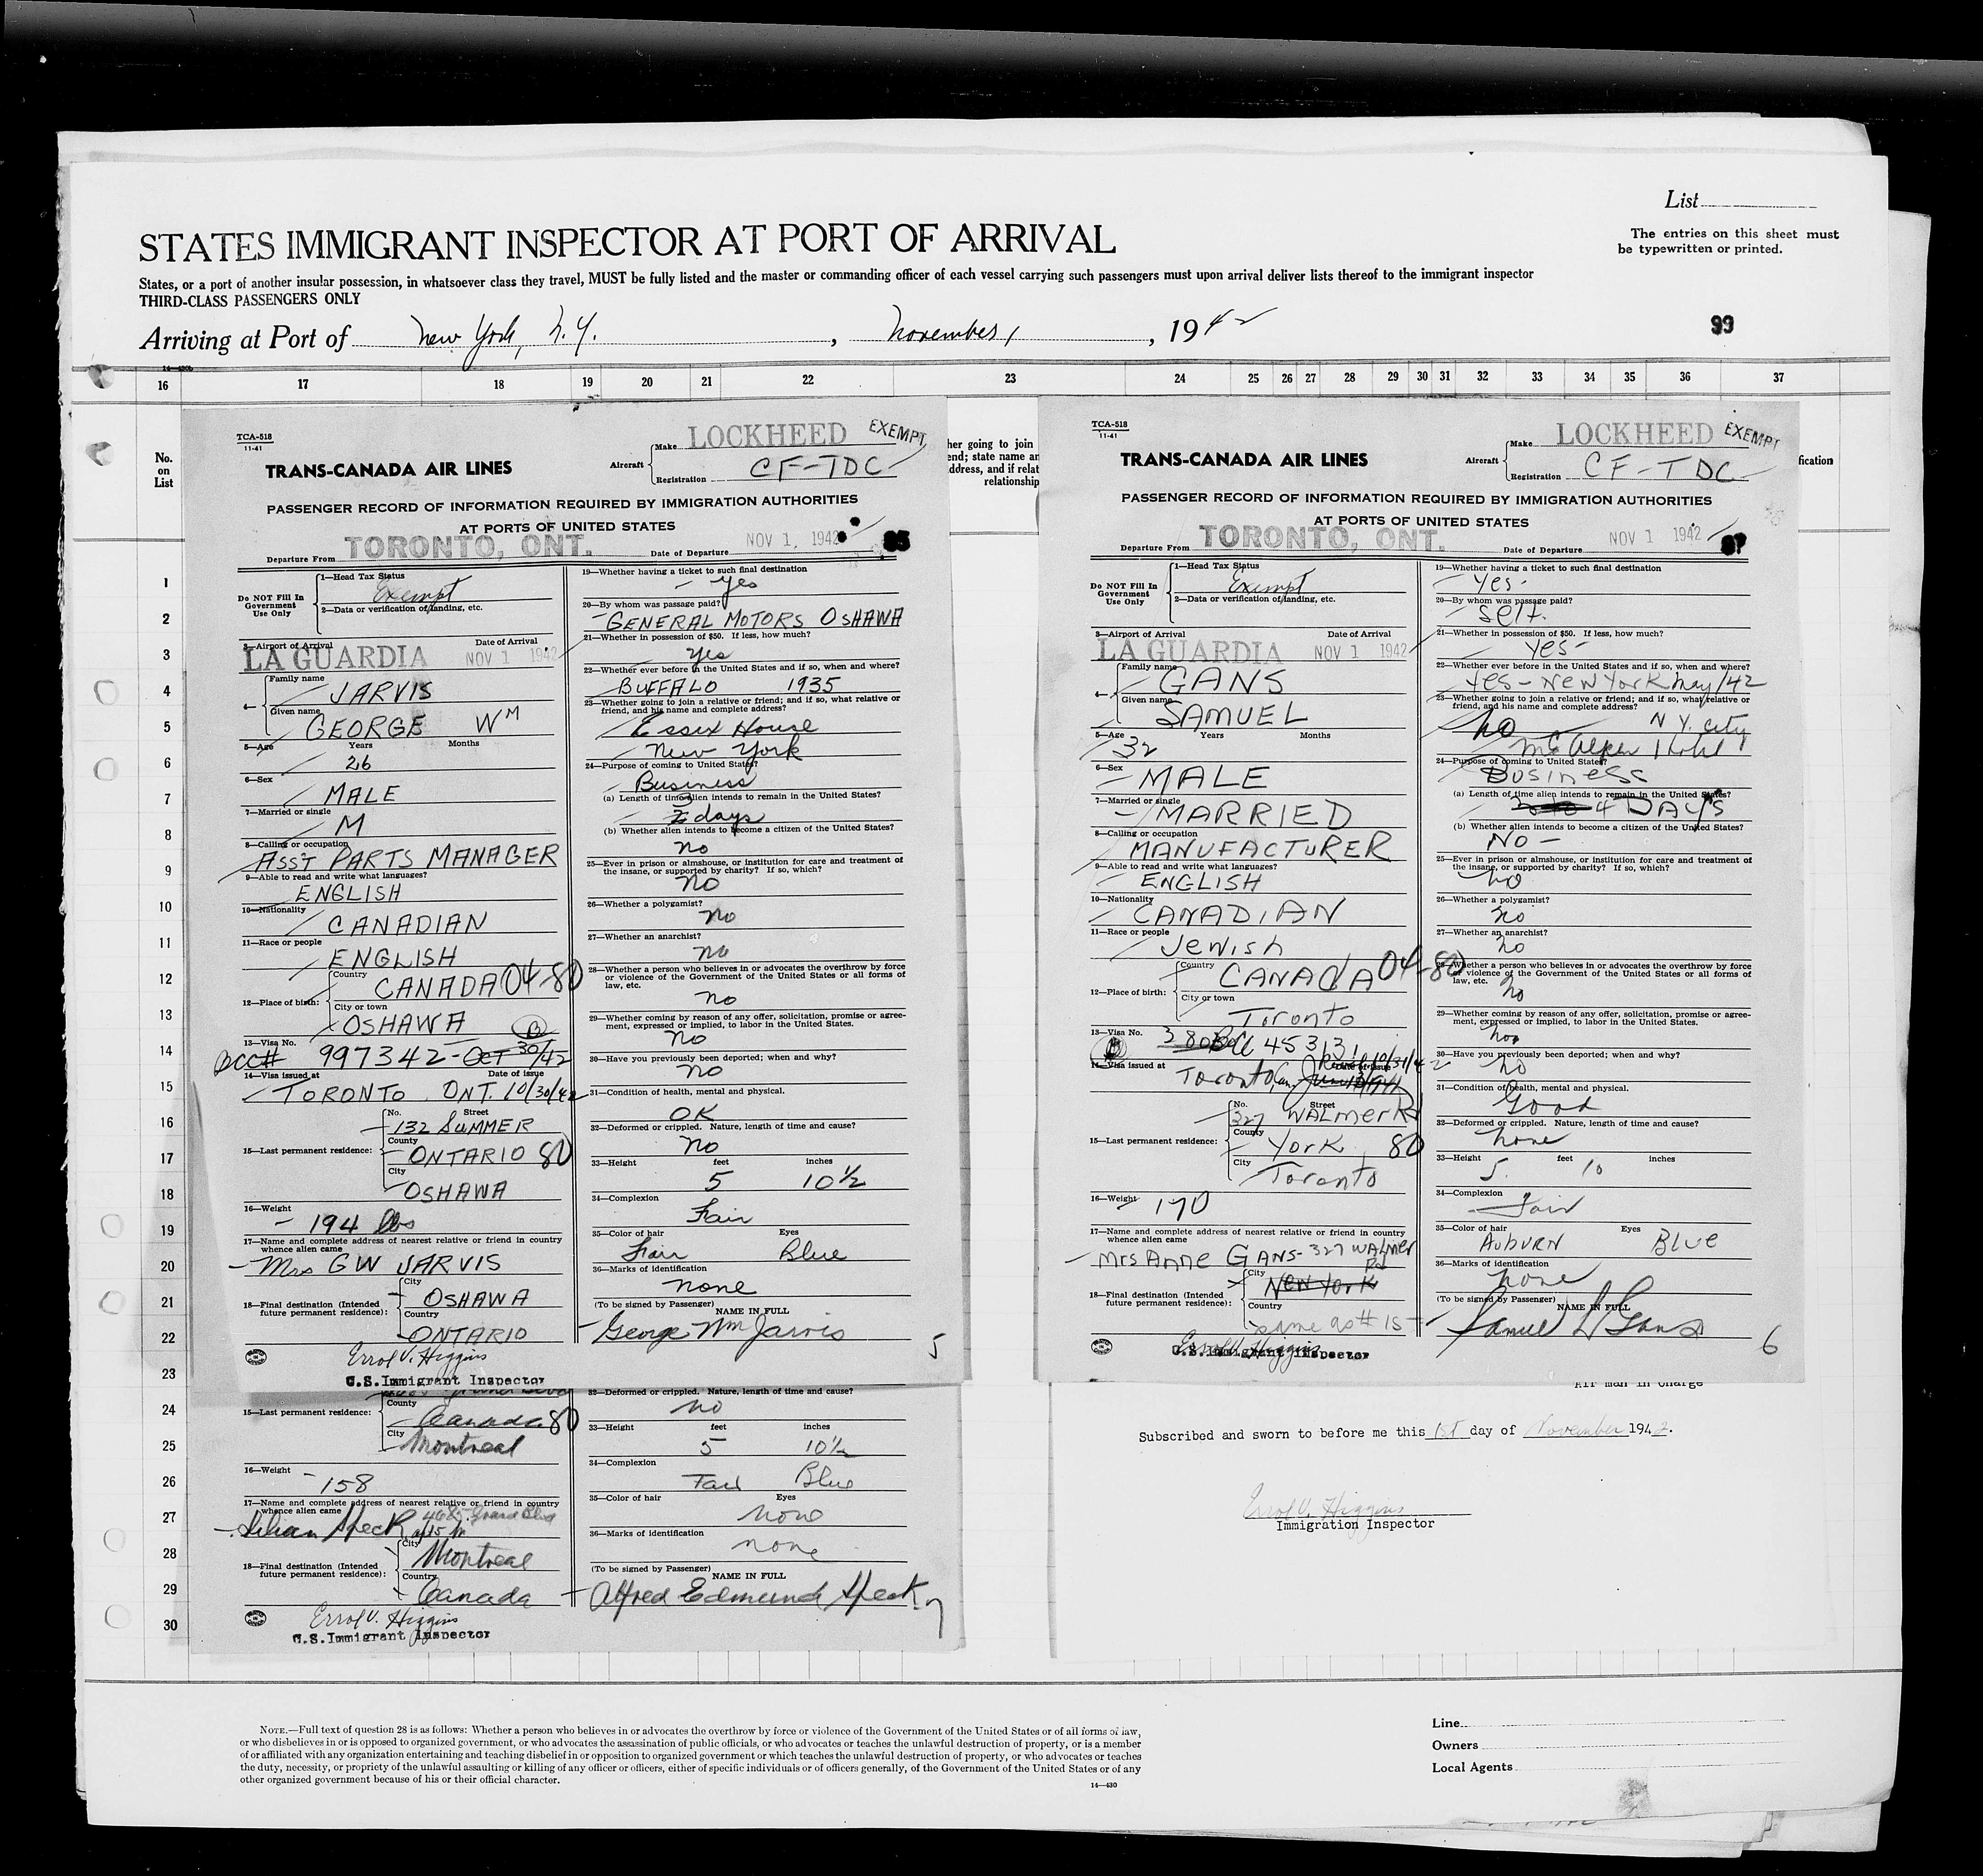 List
The entries on this sheet must
be typewritten or printed.
STATES IMMIGRANT INSPECTOR AT PORT OF ARRIVAL
States, or a port of another insular possession, in whatsoever class they travel, MUST be fully listed and the master or commanding officer of each vessel carrying such passengers must upon arrival deliver lists thereof to the immigrant inspector
THIRD-CLASS PASSENGERS ONLY
Arriving at Port of New York, N.Y. , November 1 , 1942
99
16 17 18 19 20 21 22 23 24 25 26 27 28 29 30 31 32 33 34 35 36 37
No.
on
List
her going to join
end; state name an
ddress, and if relat
relationship
fication
1
2
3
4
5
6
7
8
9
10
11
12
13
14
15
16
17
18
19
20
21
22
23
24
25
26
27
28
29
30
TCA-518
11-41
TRANS-CANADA AIR LINES
Aircraft
Make LOCKHEED
EXEMPT
Registration CF-TDC
PASSENGER RECORD OF INFORMATION REQUIRED BY IMMIGRATION AUTHORITIES
AT PORTS OF UNITED STATES
Departure From TORONTO, ONT.
Date of Departure NOV 1, 1942
Do NOT Fill In
Government
Use Only
1—Head Tax Status
Exempt
2—Data or verification of landing, etc.
3—Airport of Arrival Date of Arrival
LA GUARDIA NOV 1 1942
4—
Family name
JARVIS
Given name
GEORGE WM
5—Age Years Months
26
6—Sex
MALE
7—Married or single
M
8—Calling or occupation
ASS'T PARTS MANAGER
9—Able to read and write what languages?
ENGLISH
10—Nationality
CANADIAN
11—Race or people
ENGLISH
12—Place of birth:
Country
CANADA 04-80
City or town
OSHAWA B
13—Visa No.
BCC# 997342 - OCT 30/42
14—Visa issued at Date of issue
TORONTO ONT. 10/30/42
15—Last permanent residence:
No. Street
132 SUMMER
County
ONTARIO 80
City
OSHAWA
16—Weight
194 lbs
17—Name and complete address of nearest relative or friend in country
whence alien came
Mrs GW JARVIS
18—Final destination (Intended
future permanent residence):
City
OSHAWA
Country
ONTARIO
Errol V. Higgins
U.S.Immigrant Inspector
19—Whether having a ticket to such final destination
yes
20—By whom was passage paid?
GENERAL MOTORS OSHAWA
21—Whether in possession of $50. If less, how much?
yes
22—Whether ever before in the United States and if so, when and where?
BUFFALO 1935
23—Whether going to join a relative or friend; and if so, what relative or
friend, and his name and complete address?
Essex House
New York
24—Purpose of coming to United States?
Business
(a) Length of time alien intends to remain in the United States?
days
(b) Whether alien intends to become a citizen of the United States?
no
25—Ever in prison or almshouse, or institution for care and treatment of
the insane, or supported by charity? If so, which?
no
26—Whether a polygamist?
no
27—Whether an anarchist?
no
28—Whether a person who believes in or advocates the overthrow by force
or violence of the Government of the United States or all forms of
law, etc.
no
29—Whether coming by reason of any offer, solicitation, promise or agree-
ment, expressed or implied, to labor in the United States.
no
30—Have you previously been deported; when and why?
no
31—Condition of health, mental and physical.
OK
32—Deformed or crippled. Nature, length of time and cause?
no
33—Height feet inches
5 10½
34—Complexion
Fair
35—Color of hair Eyes
Fair Blue
36—Marks of identification
none
(To be signed by Passenger)
NAME IN FULL
George Wm Jarvis
5
County
Canada 80
City
Montreal
15—Last permanent residence:
16—Weight
158
17—Name and complete address of nearest relative or friend in country
whence alien came
Lilian Speck
18—Final destination (Intended
future permanent residence):
City
Montreal
Country
Canada
Errol V. Higgins
U.S.Immigrant Inspector
32—Deformed or crippled. Nature, length of time and cause?
no
33—Height feet inches
5 10½
34—Complexion
Fair Blue
35—Color of hair Eyes
none
36—Marks of identification
none
(To be signed by Passenger)
NAME IN FULL
Alfred Edmund Speck
7
TCA-518
11-41
TRANS-CANADA AIR LINES
Aircraft
Make LOCKHEED
EXEMPT
Registration CF-TDC
PASSENGER RECORD OF INFORMATION REQUIRED BY IMMIGRATION AUTHORITIES
AT PORTS OF UNITED STATES
Departure From TORONTO, ONT.
Date of Departure NOV 1 1942
Do NOT Fill In
Government
Use Only
1—Head Tax Status
Exempt
2—Data or verification of landing, etc.
3—Airport of Arrival Date of Arrival
LA GUARDIA NOV 1 1942
4—
Family name
GANS
Given name
SAMUEL
5—Age Years Months
32
6—Sex
MALE
7—Married or single
MARRIED
8—Calling or occupation
MANUFACTURER
9—Able to read and write what languages?
ENGLISH
10—Nationality
CANADIAN
11—Race or people
Jewish
12—Place of birth:
Country
CANADA 04-80
City or town
Toronto
13—Visa No.
45313
14—Visa issued at Date of issue
Toronto, Can. 10/31/42
15—Last permanent residence:
No. Street
327 WALMER Rd
County
York 80
City
Toronto
16—Weight
170
17—Name and complete address of nearest relative or friend in country
whence alien came
Mrs Anne GANS - 327 WALMER
Rd
18—Final destination (Intended
future permanent residence):
City
New York
Country
same as # 15
Errol V. Higgins
U.S.Immigrant Inspector
19—Whether having a ticket to such final destination
yes -
20—By whom was passage paid?
self.
21—Whether in possession of $50. If less, how much?
yes -
22—Whether ever before in the United States and if so, when and where?
yes - New York May/42
23—Whether going to join a relative or friend; and if so, what relative or
friend, and his name and complete address?
no N Y. City
McAlpin Hotel
24—Purpose of coming to United States?
Business
(a) Length of time alien intends to remain in the United States?
4 DAYS
(b) Whether alien intends to become a citizen of the United States?
NO -
25—Ever in prison or almshouse, or institution for care and treatment of
the insane, or supported by charity? If so, which?
no
26—Whether a polygamist?
no
27—Whether an anarchist?
no
28—Whether a person who believes in or advocates the overthrow by force
or violence of the Government of the United States or all forms of
law, etc.
no
29—Whether coming by reason of any offer, solicitation, promise or agree-
ment, expressed or implied, to labor in the United States.
no
30—Have you previously been deported; when and why?
no
31—Condition of health, mental and physical.
Good
32—Deformed or crippled. Nature, length of time and cause?
none
33—Height feet inches
5 10
34—Complexion
Fair
35—Color of hair Eyes
AUBURN BLUE
36—Marks of identification
none
(To be signed by Passenger)
NAME IN FULL
Samuel Gans
6
Air man in Charge
Subscribed and sworn to before me this 1st day of November 1942.
Errol V. Higgins
Immigration Inspector
NOTE.—Full text of question 28 is as follows: Whether a person who believes in or advocates the overthrow by force or violence of the Government of the United States or of all forms of law,
or who disbelieves in or is opposed to organized government, or who advocates the assassination of public officials, or who advocates or teaches the unlawful destruction of property, or is a member
of or affiliated with any organization entertaining and teaching disbelief in or opposition to organized government or which teaches the unlawful destruction of property, or who advocates or teaches
the duty, necessity, or propriety of the unlawful assaulting or killing of any officer or officers, either of specific individuals or of officers generally, of the Government of the United States or of any
other organized government because of his or their official character.
14—430
Line
Owners
Local Agents